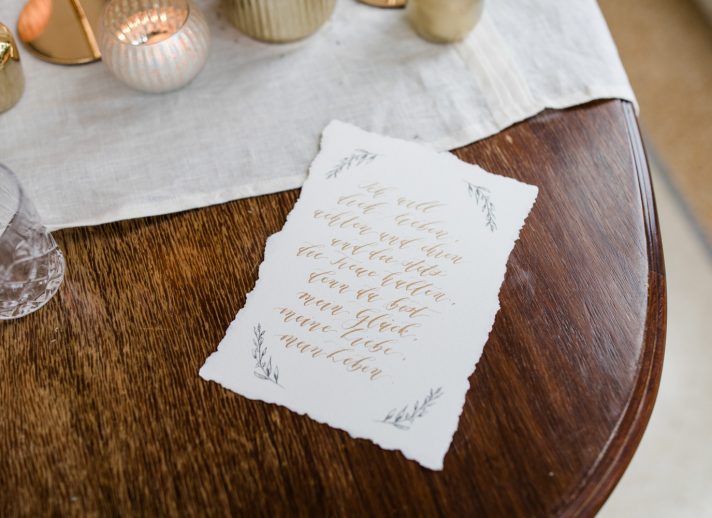 Ich will
dich lieben,
achten und ehren
und dir stets
die Treue halten,
denn du bist
mein Glück,
meine Liebe,
mein Leben.